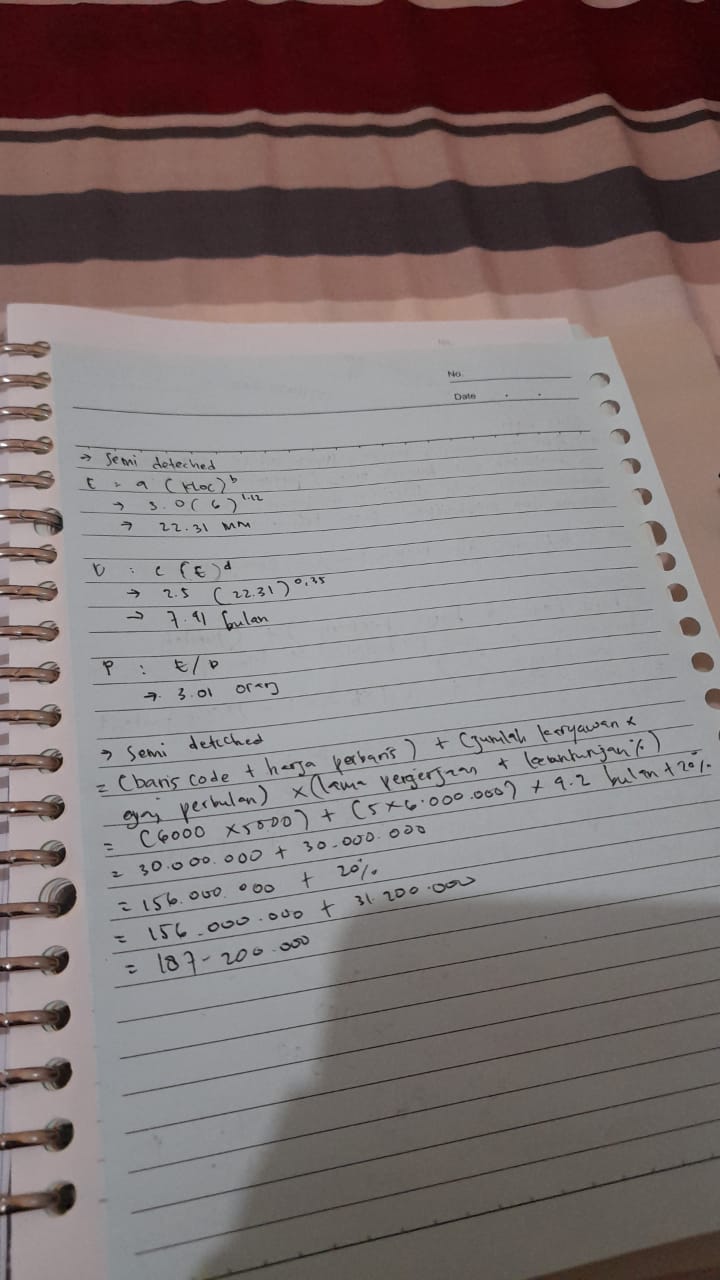 No.
Date
→ Semi deteched
E = a (KLOC)ᵇ
→ 3.0 (6)¹·¹²
→ 22.31 MM
D : c (E)ᵈ
→ 2.5 (22.31)⁰·³⁵
→ 7.41 bulan
P : E/D
→ 3.01 orang
→ Semi deteched
= (baris code + harga perbaris) + (Jumlah karyawan x
gaj perbulan) x (lama pengerjaan + keuntungan %)
= (6000 x 5000) + (5 x 6.000.000) x 4.2 bulan + 20%
= 30.000.000 + 30.000.000
= 156.000.000 + 20%
= 156.000.000 + 31.200.000
= 187.200.000